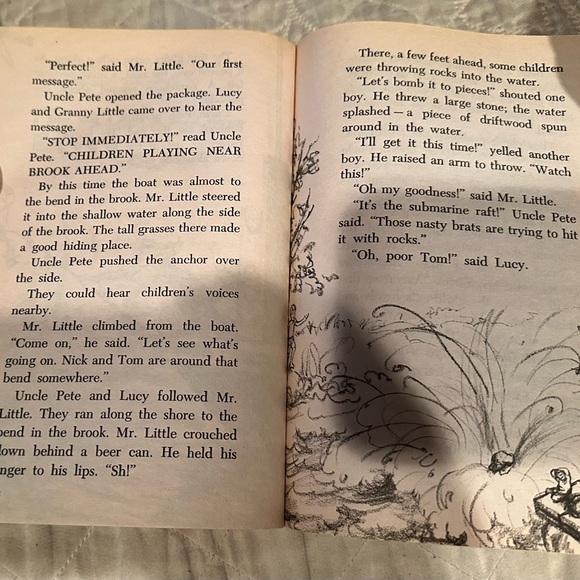 "Perfect!" said Mr. Little. "Our first
message."
Uncle Pete opened the package. Lucy
and Granny Little came over to hear the
message.
"STOP IMMEDIATELY!" read Uncle
Pete. "CHILDREN PLAYING NEAR
BROOK AHEAD."
By this time the boat was almost to
the bend in the brook. Mr. Little steered
it into the shallow water along the side
of the brook. The tall grasses there made
a good hiding place.
Uncle Pete pushed the anchor over
the side.
They could hear children's voices
nearby.
Mr. Little climbed from the boat.
"Come on," he said. "Let's see what's
going on. Nick and Tom are around that
bend somewhere."
Uncle Pete and Lucy followed Mr.
Little. They ran along the shore to the
bend in the brook. Mr. Little crouched
down behind a beer can. He held his
nger to his lips. "Sh!"
There, a few feet ahead, some children
were throwing rocks into the water.
"Let's bomb it to pieces!" shouted one
boy. He threw a large stone; the water
splashed — a piece of driftwood spun
around in the water.
"I'll get it this time!" yelled another
boy. He raised an arm to throw. "Watch
this!"
"Oh my goodness!" said Mr. Little.
"It's the submarine raft!" Uncle Pete
said. "Those nasty brats are trying to hit
it with rocks."
"Oh, poor Tom!" said Lucy.